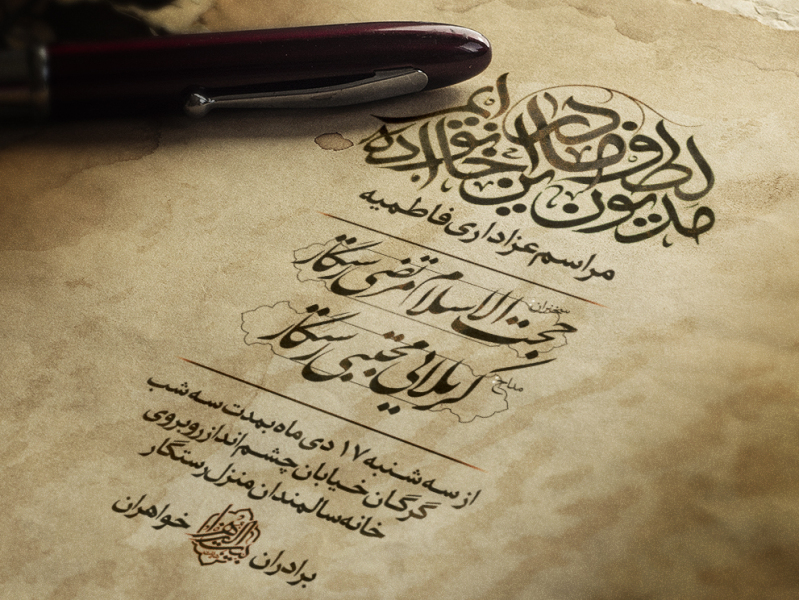 مدیون این خانواده ایم
لطف و مادر
مراسم عزاداری فاطمیه
سخنران
حجت الاسلام مرتضی رستگار
مداح
کربلائی مجتبی رستگار
از سه شنبه ۱۷ دی ماه بمدت سه شب
گرگان خیابان چشم انداز روبروی
خانه سالمندان منزل رستگار
برادران بیت الزهرا خواهران